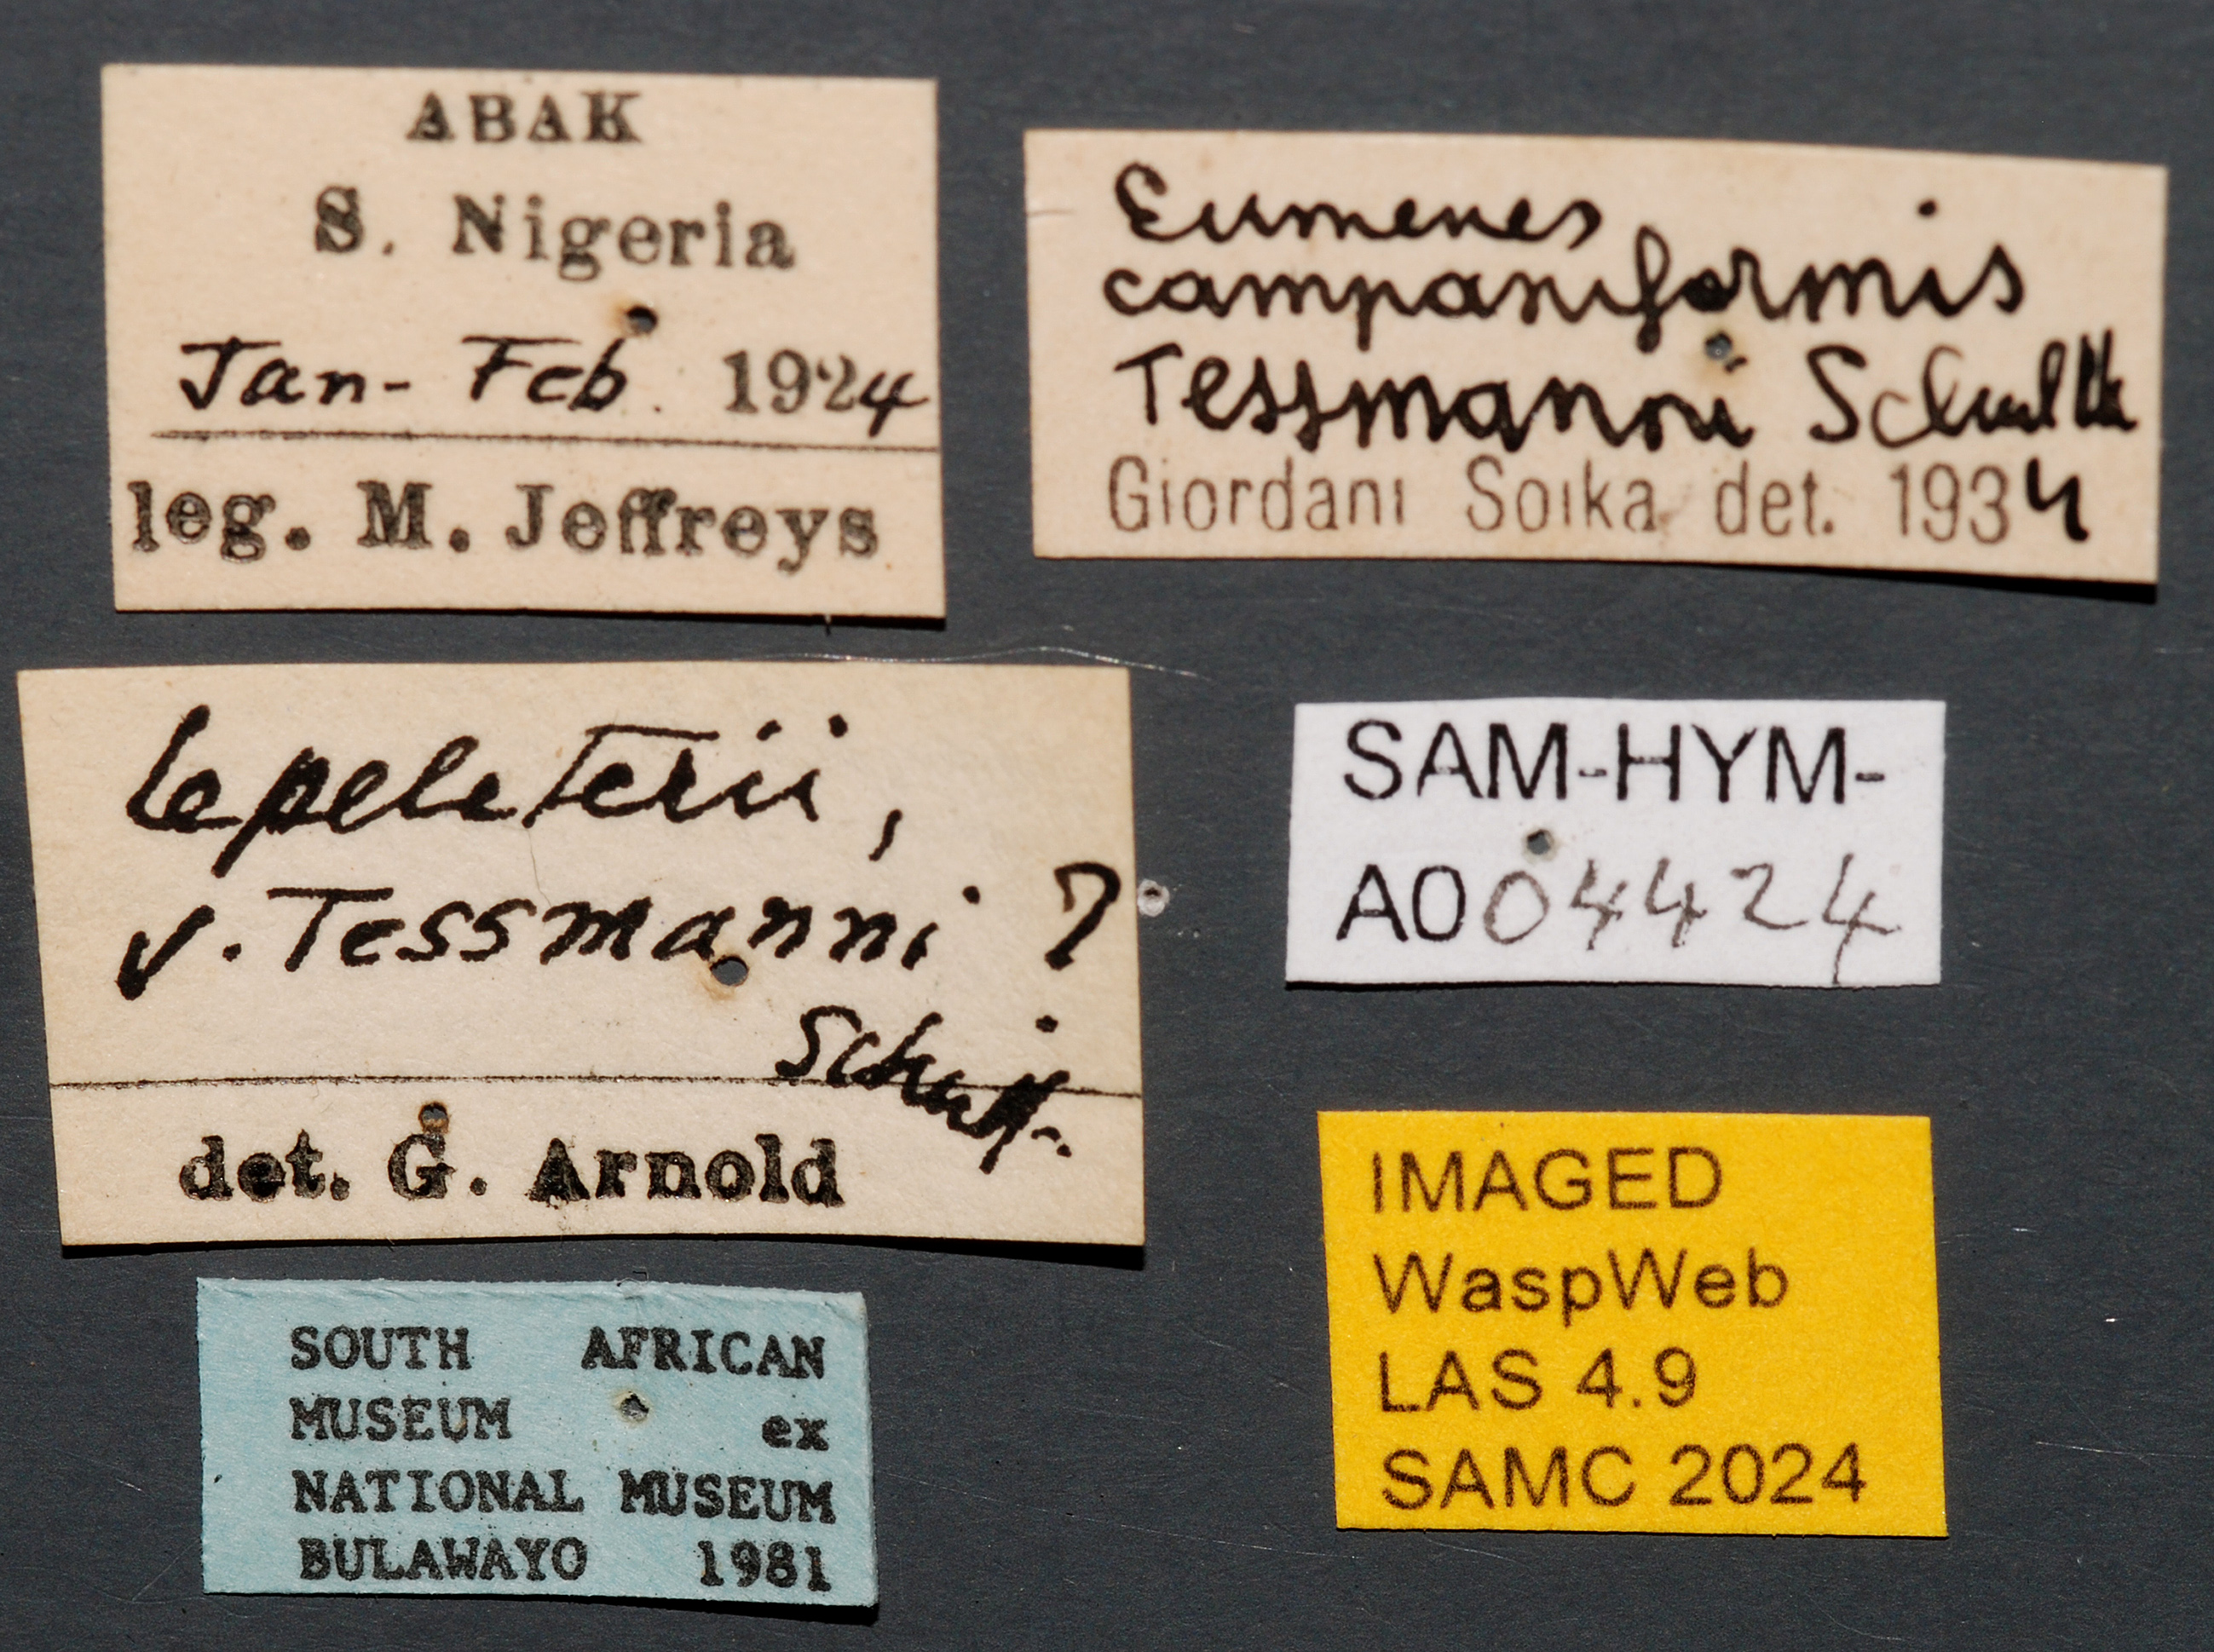 ABAK
S. Nigeria
Jan- Feb. 1924
leg. M. Jeffreys
Eumenes
campaniformis
Tessmanni Schulth
Giordani Soika det. 1934
lepeleterii,
v. Tessmanni ?
Schulth.
det. G. Arnold
SAM-HYM-
A004424
SOUTH AFRICAN
MUSEUM ex
NATIONAL MUSEUM
BULAWAYO 1981
IMAGED
WaspWeb
LAS 4.9
SAMC 2024